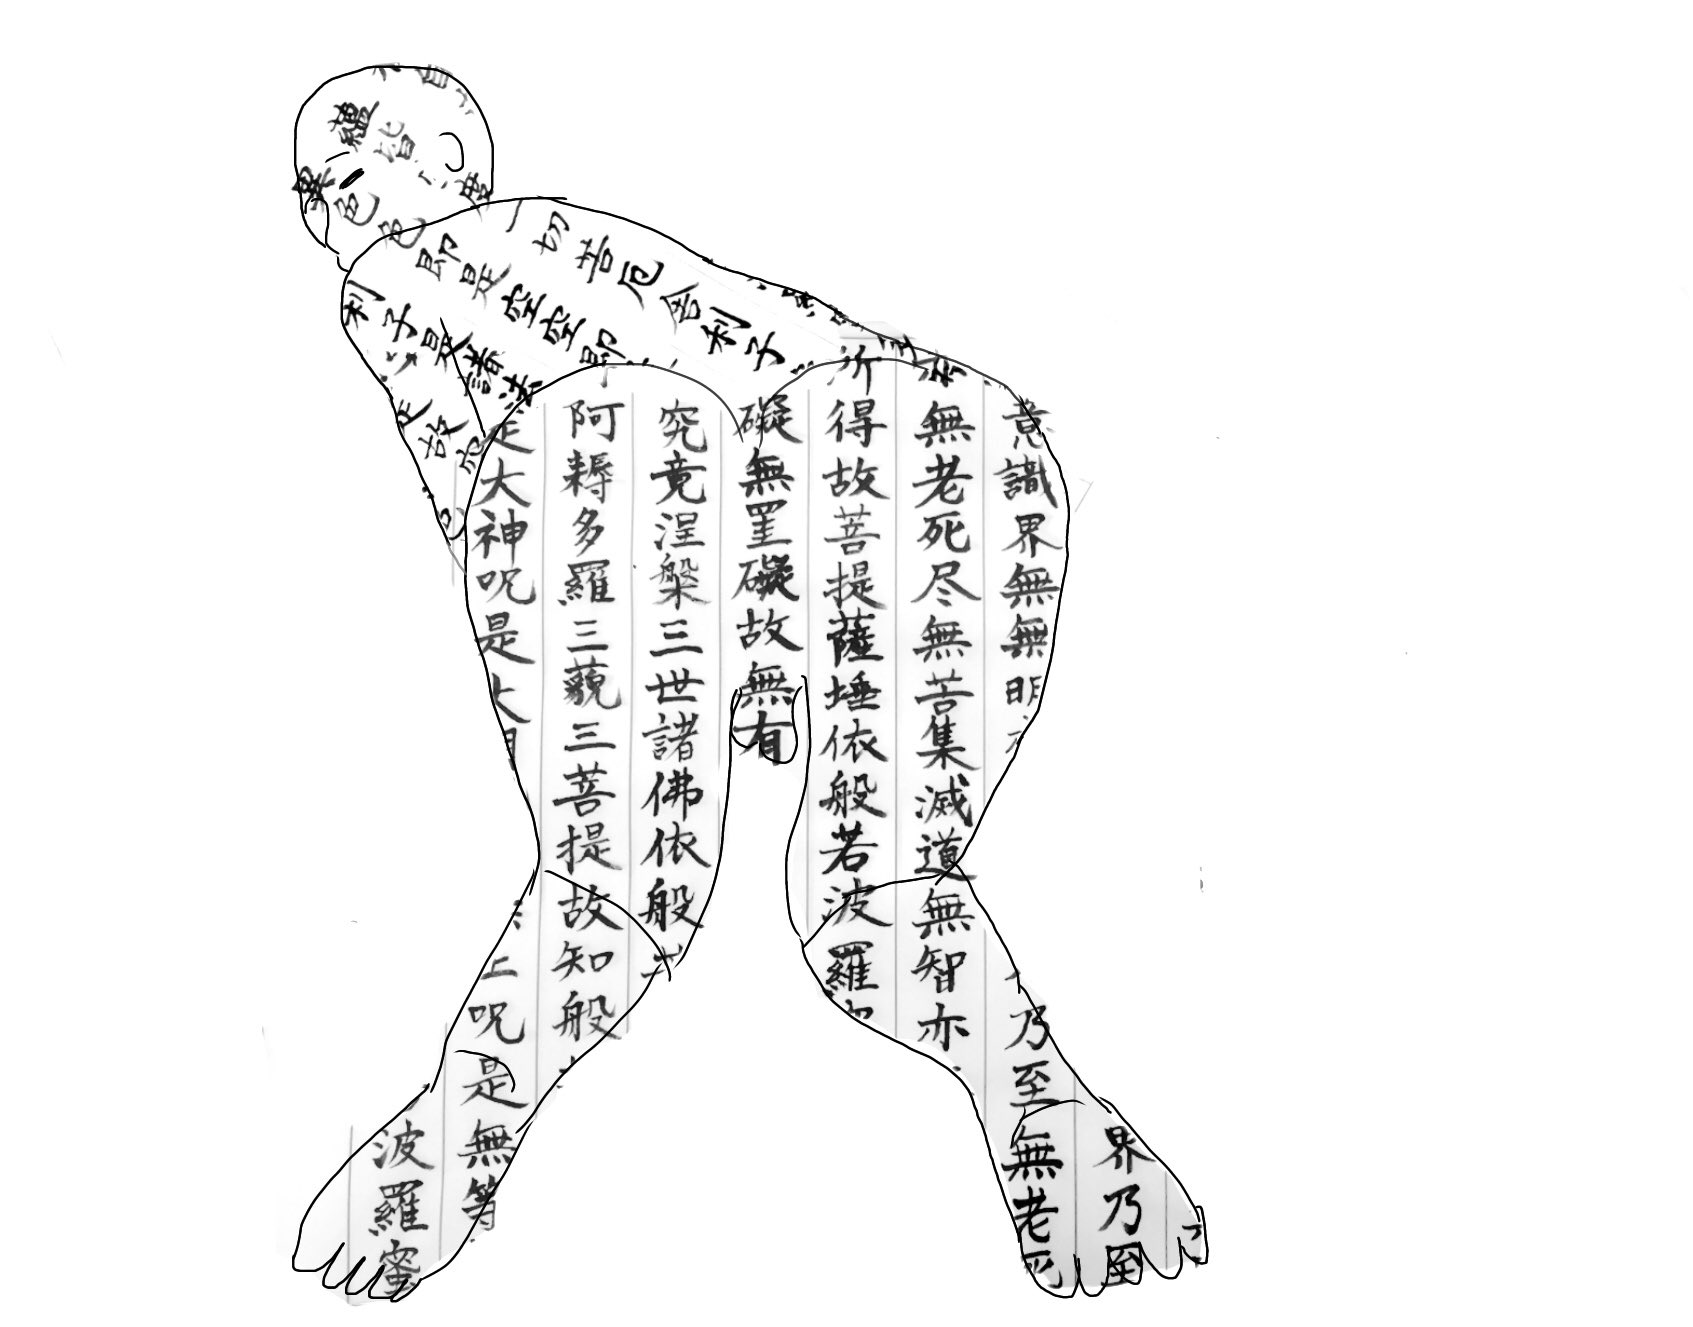 意識界無無明
無老死尽無苦集滅道無智亦
所得故菩提薩埵依般若波羅
礙無罣礙故無有
究竟涅槃三世諸佛依般
阿耨多羅三藐三菩提故知般
大神呪是大
上呪是無等
波羅蜜
乃至無老死
界乃至
蘊皆
度一切苦厄舎利子
異色
色即是空空即
利子是諸法
故空